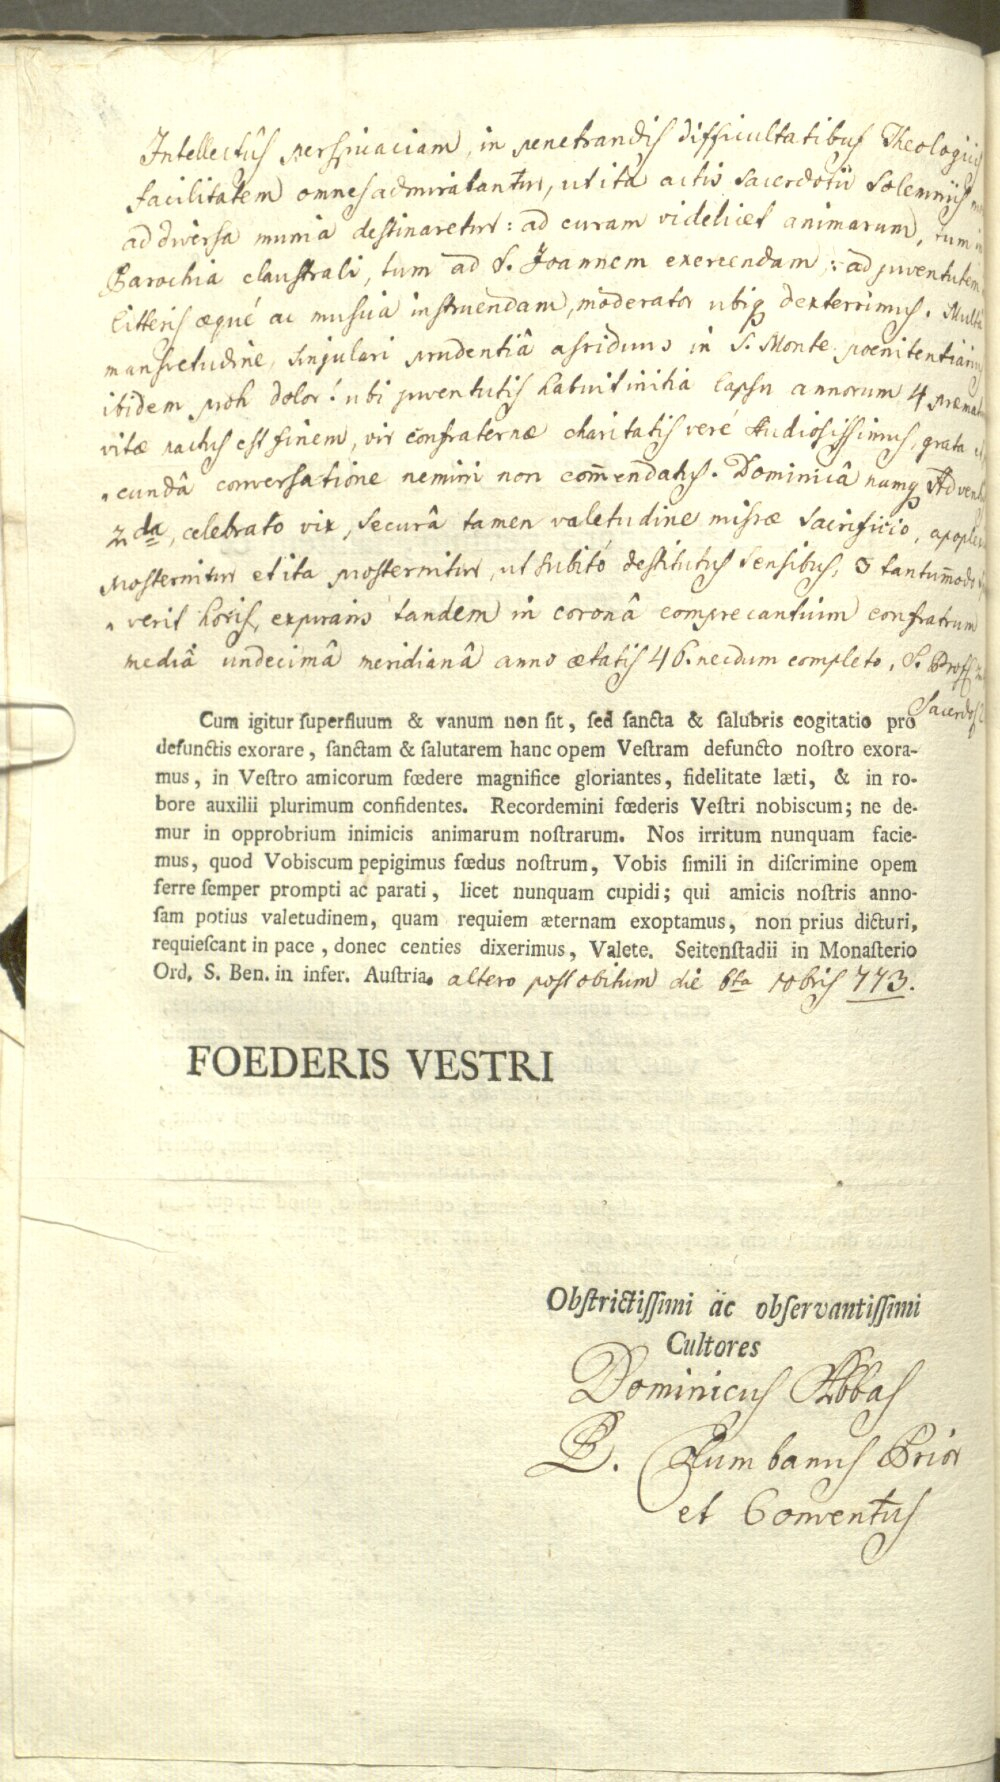 Intellectûs perspicaciam, in penetrandis difficultatibus Theologicis
facilitatem omnes admirabantur, ut ita actis Sacerdotii Solemniis
ad diversa munia destinaretur: ad curam videlicet animarum, tum in
Parochia claustrali, tum ad S. Joannem exercendam; ad juventutem
litteris æqué ac musica instruendam, moderator ubiq dexterrimus. Multâ
mansvetudine, singulari prudentiâ assiduus in S. Monte poenitentiarius
ibidem proh dolor! ubi juventutis habuit initia lapsu annorum 4
vitæ nactus est finem, vir confraternæ charitatis veré studiosissimus, grata
cundâ conversatione nemini non com̄endatus. Dominicâ namq Adventûs
2da, celebrato vix, securâ tamen valetudine missæ sacrificio,
prosternitur et ita prosternitur, ut subitó destitutus sensibus, 3 tantum̄odo
verit horis, expirans tandem in coronâ comprecantium confratrum
mediâ undecimâ meridianâ anno ætatis 46. necdum completo, S. Prof.
Sacerdos
Cum igitur ſuperfluum & vanum non ſit, ſed ſancta & ſalubris cogitatio pro
defunctis exorare, ſanctam & ſalutarem hanc opem Veſtram defuncto noſtro exora-
mus, in Veſtro amicorum fœdere magnifice gloriantes, fidelitate læti, & in ro-
bore auxilii plurimum confidentes. Recordemini fœderis Veſtri nobiscum; ne de-
mur in opprobrium inimicis animarum noſtrarum. Nos irritum nunquam facie-
mus, quod Vobiscum pepigimus fœdus noſtrum, Vobis ſimili in diſcrimine opem
ferre ſemper prompti ac parati, licet nunquam cupidi; qui amicis noſtris anno-
ſam potius valetudinem, quam requiem æternam exoptamus, non prius dicturi,
requieſcant in pace, donec centies dixerimus, Valete. Seitenſtadii in Monaſterio
Ord. S. Ben. in infer. Auſtria. altero post obitum die 6ta Xbris 773.
FOEDERIS VESTRI
Obſtrictiſſimi ac obſervantiſſimi
Cultores
Dominicus Abbas
P. Columbanus Prior
et Conventus